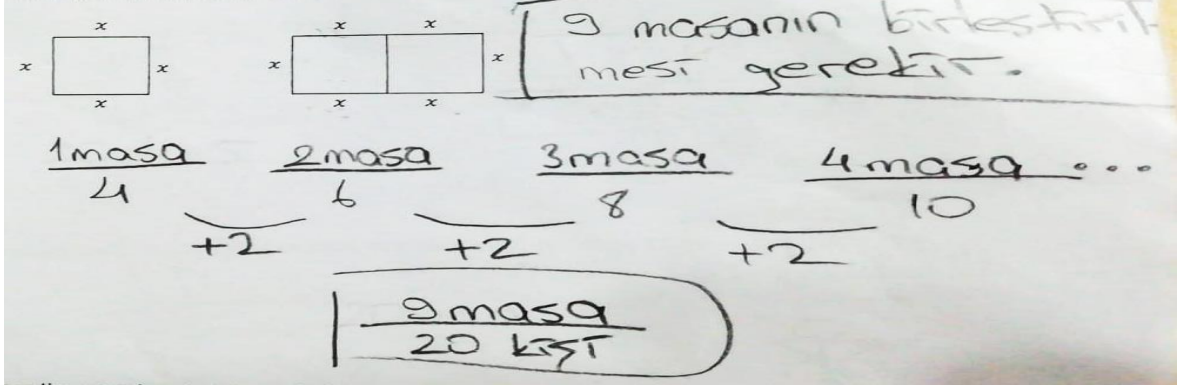 x
x x
x
x x
x x
x x
9 masanın birleştiril
mesi gerekir.
1masa 2masa 3masa 4masa ...
4 6 8 10
+2 +2 +2
9masa
20 kişi